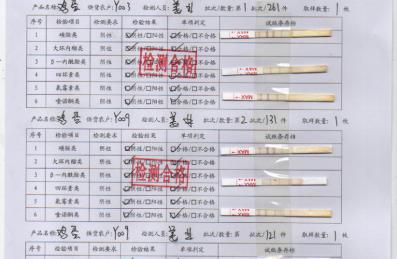 产品名称:鸡蛋 供货农户:Y003 检测人员: 批次/数量:第1批次/261件 取样数量:1枚
序号 检验项目 检测要求 检验结果 单项判定 试纸条存档
1 磺胺类 阴性 ☑阴性/☐阳性 ☑合格/☐不合格
2 大环内酯类 阴性 ☑阴性/☐阳性 ☑合格/☐不合格
3 β-内酰胺类 阴性 ☑阴性/☐阳性 ☑合格/☐不合格
4 四环素类 阴性 ☑阴性/☐阳性 ☑合格/☐不合格
5 氟霉素类 阴性 ☑阴性/☐阳性 ☑合格/☐不合格
6 喹诺酮类 阴性 ☑阴性/☐阳性 ☑合格/☐不合格
检测合格
MAX
MAX
MAX
产品名称:鸡蛋 供货农户:Y009 检测人员: 批次/数量:第2批次/131件 取样数量:1枚
序号 检验项目 检测要求 检验结果 单项判定 试纸条存档
1 磺胺类 阴性 ☑阴性/☐阳性 ☑合格/☐不合格
2 大环内酯类 阴性 ☑阴性/☐阳性 ☑合格/☐不合格
3 β-内酰胺类 阴性 ☑阴性/☐阳性 ☑合格/☐不合格
4 四环素类 阴性 ☑阴性/☐阳性 ☑合格/☐不合格
5 氟霉素类 阴性 ☑阴性/☐阳性 ☑合格/☐不合格
6 喹诺酮类 阴性 ☑阴性/☐阳性 ☑合格/☐不合格
检测合格
MAX
MAX
MAX
产品名称:鸡蛋 供货农户:Y009 检测人员: 批次/数量:第 批次/121件 取样数量:1枚
序号 检验项目 检测要求 检验结果 单项判定 试纸条存档